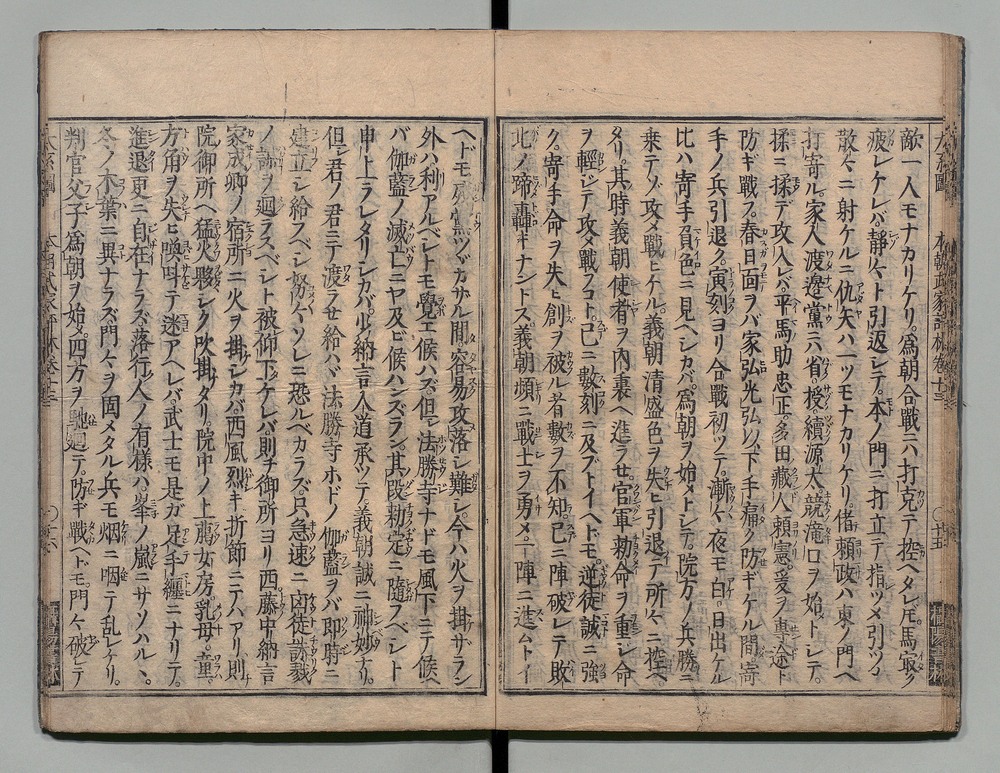 敵一人モナカリケリ。爲朝合戰ニハ打克テ控ヘタレ𪜈。馬取ク
疲レケレバ。靜々ト引返シテ。本ノ門ニ打立テ指ツメ引ツメ
散々ニ射ケルニ仇矢ハ一ツモナカリケリ。偖頼政ハ東ノ門ヘ
打寄ル家人渡邊黨ニハ省。授。續源太。競滝口ヲ始トシテ。
揉ニ揉デ攻入レバ。平馬助忠正。多田藏人頼憲。爰ヲ專途ト
防ギ戰フ。春日面ヲバ家弘光弘以下手痛ク防ギケル間寄
手ノ兵引退ク。寅刻ヨリ合戰初ツテ。漸々夜モ白。日出ケル
比ハ寄手負色ニ見ヘシカバ。爲朝ヲ始メトシテ。院方ノ兵勝ニ
乗テゾ攻メ戰ヒケル。義朝清盛色ヲ失ヒ引退テ所々ニ控ヘ
タリ。其時義朝使者ヲ内裏ヘ進ラセ。官軍勅命ヲ重シ命
ヲ輕シテ攻メ戰フコト。已ニ數刻ニ及ブトイヘドモ。逆徒誠ニ強
ク。寄手命ヲ失ヒ創ヲ被ル者數ヲ不知已ニ陣破レテ敗
北ノ蹄轟キナントス義朝頻ニ戰士ヲ勇メ。一陣ニ進ムトイ
ヘドモ。殘黨ツヾカザル間。容易攻落シ難シ。今ハ火ヲ掛ザラン
外ハ利アルベシトモ覺エ候ハズ。但シ法勝寺ナドモ風下ニテ候ヘ
バ。伽藍ノ滅亡ニヤ及ビ候ハンズラン其段勅定ニ隨フベシト
申上ラレタリシカバ。少納言入道承ツテ。義朝誠ニ神妙ナリ。
但シ君ノ君ニテ渡ラセ給ハヾ法勝寺ホドノ伽藍ヲバ即時ニ
建立シ給スベシ。努々ソレニ恐ルベカラズ。只急速ニ凶徒誅戮
ノ謀ヲ廻ラスベシト被仰下ケレバ。則チ御所ヨリ西藤中納言
家成卿ノ宿所ニ火ヲ掛シカバ。西風烈キ折節ニテハアリ。則
院御所ヘ猛火夥シク吹掛タリ。院中ノ上臈女房。乳母。童。
方角ヲ失ヒ喚叫テ迷アヘレバ。武士モ是ガ足手纏ニナリテ。
進退更ニ自在ナラズ。落行人ノ有樣ハ峯ノ嵐ニサソハルヽ。
冬ノ木葉ニ異ナラズ。門々ヲ固メタル兵モ。烟ニ咽テ乱レケリ。
判官父子爲朝ヲ始メ。四方ヲ馳廻テ。防ギ戰ヘドモ。門々破レテ